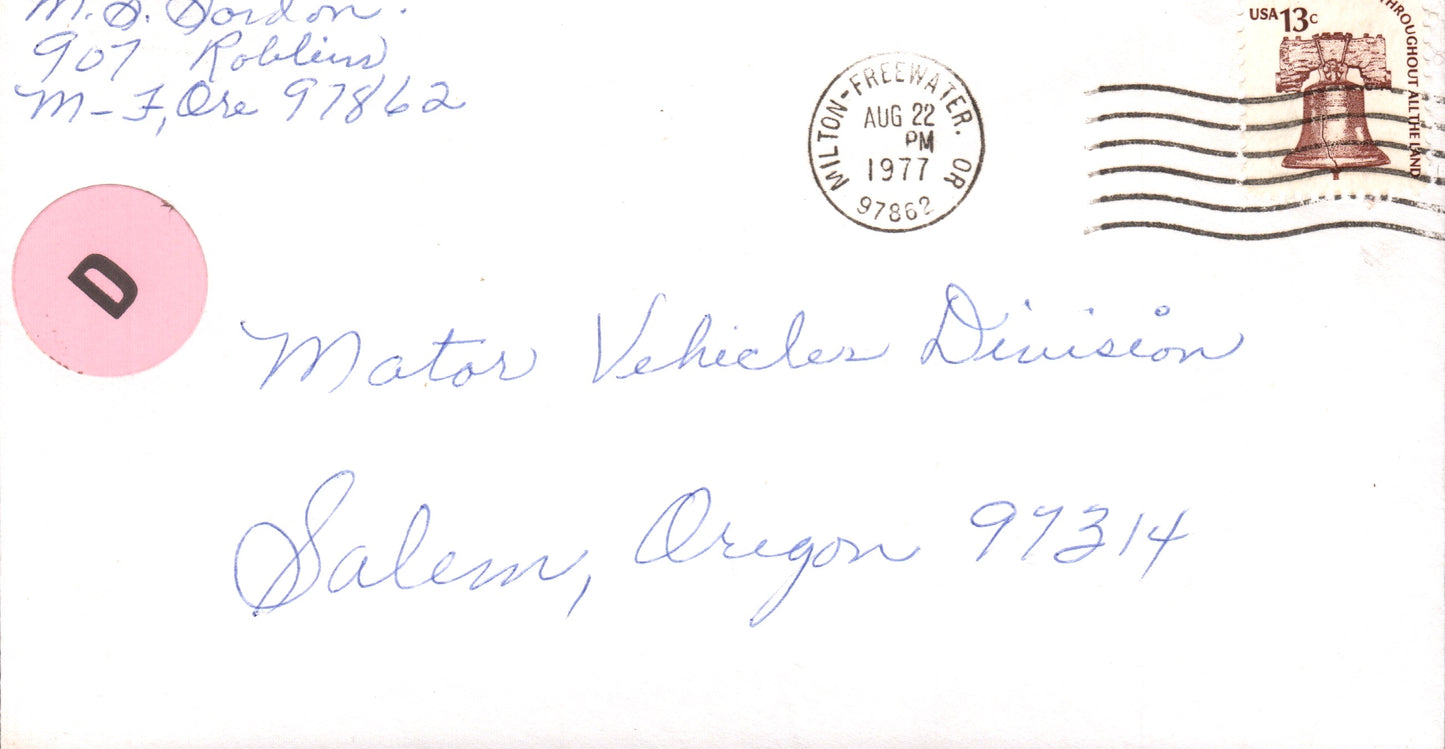 M. G. Gordon.
907 Robbins
M-F, Ore 97862
MILTON-FREEWATER. OR
AUG 22
PM
1977
97862
USA 13c
THROUGHOUT ALL THE LAND
D
Motor Vehicles Division
Salem, Oregon 97314